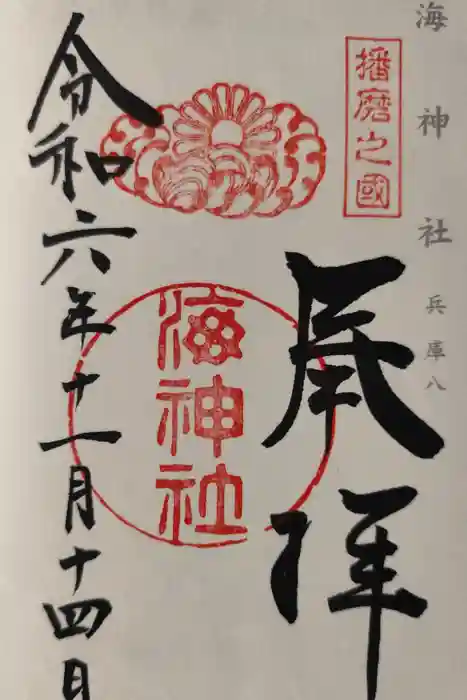 海神社 兵庫八
播磨之國
奉拝
海神社
令和六年十一月十四日